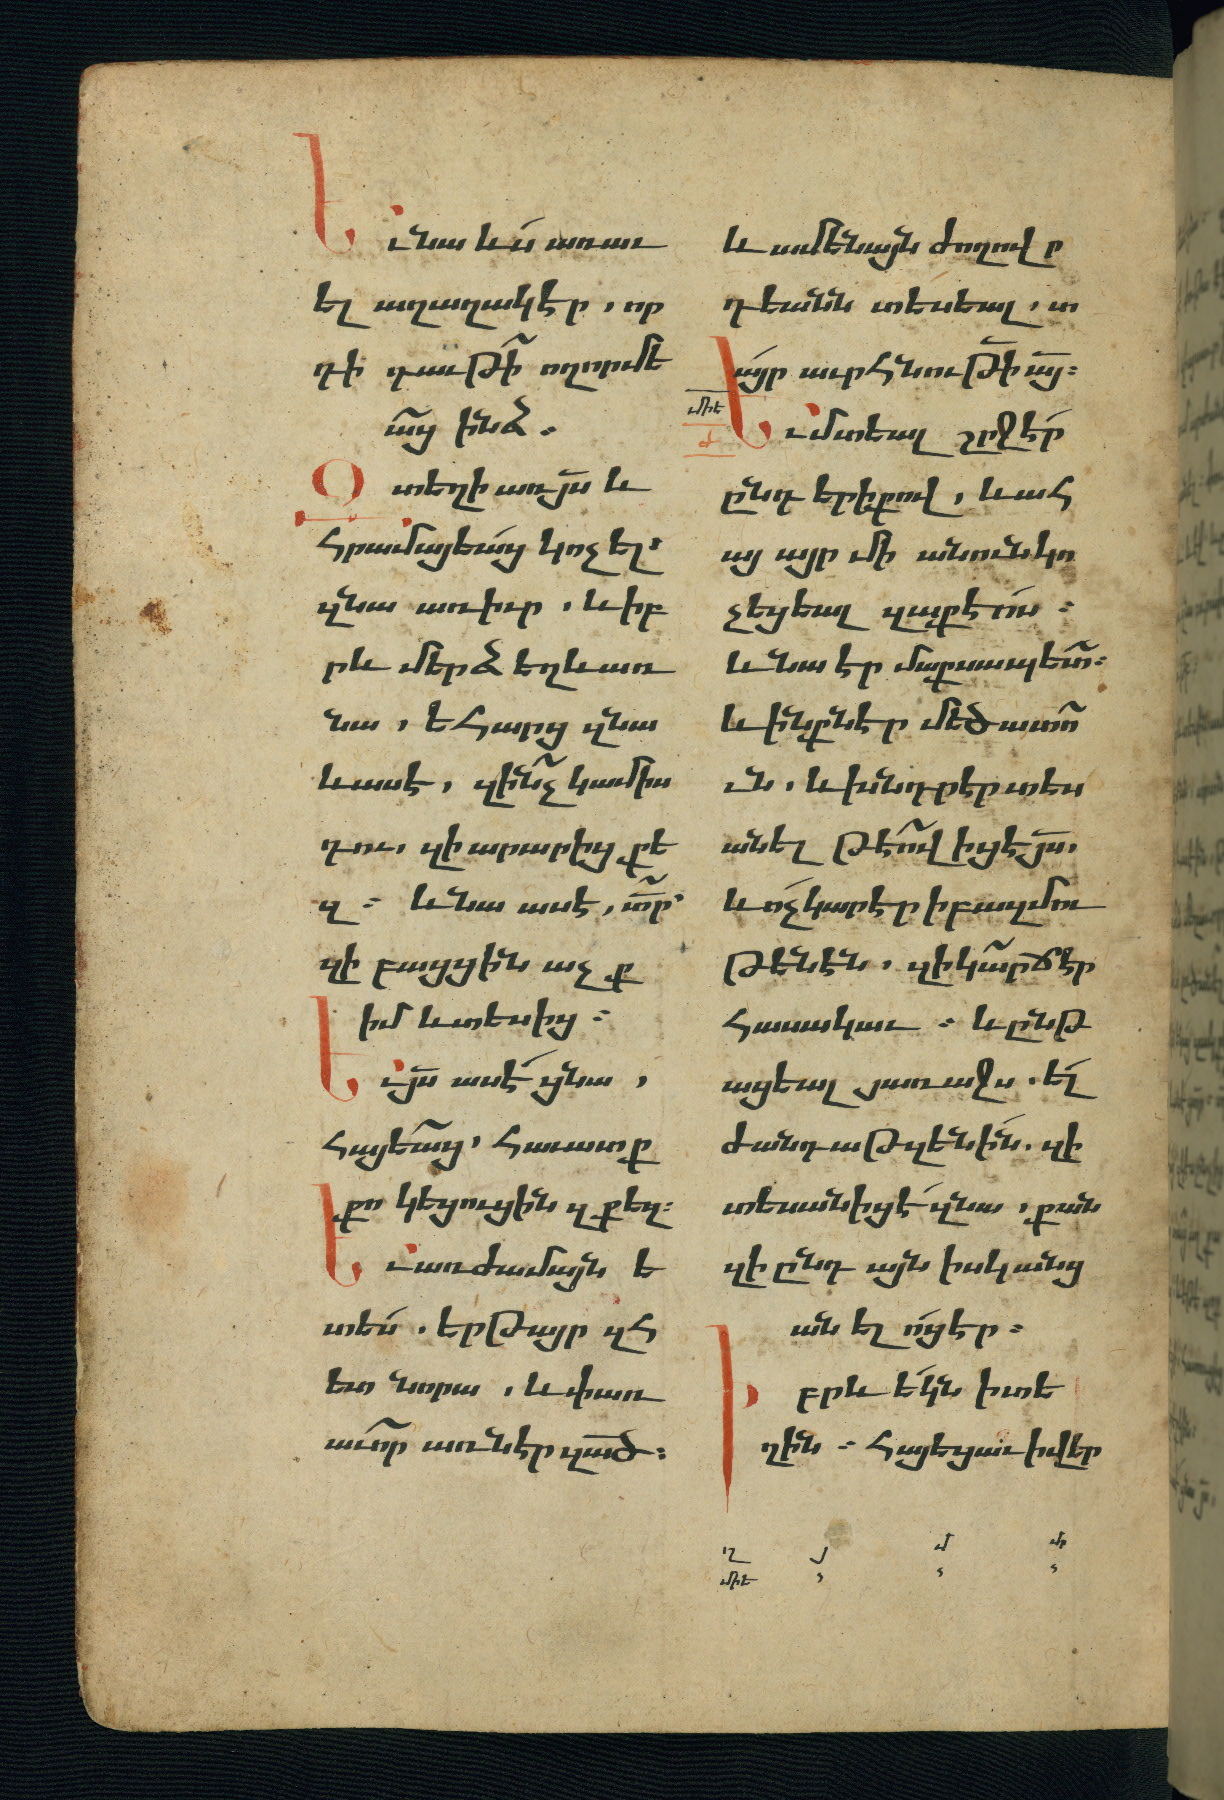 Եւ նա ևս առաւ
ել աղաղակէր, որ
դի դաւթի՛ ողորմե
ա՛ց ինձ.
Զ տեղի առ յս և
հրամայեաց կոչել.
զնա առ ինքր. և իբ
րև մերձ եղև առ
նա, եհարց զնա
և ասէ, զինչ կամիս
դու, զի արարից քե
զ : և նա ասէ, տր՛
զի բացցին աչք
իմ և տեսից :
Եւ յս ասէ՛ ցնա,
հայեա՛ց, հաւատք
քո կեցուցին զքեզ:
Եւ առժամայն ե
տես. երթայր զհ
ետ նորա, և փառ
աւոր առնէր զած:
և ամենայն ժողովր
դեանն տեսեալ, տ
այր աւրհնութի այ:
միե
ժ
Եւ մտեալ շրջէր
ընդ երիքով, և ահ
այ այր մի անուն կո
չեցեալ զաքէոս :
և նա էր մաքսապետ:
և ինքն էր մեծատու
ն. և խնդրէր տես
անել թէ ով իցէ յս,
և ոչ կարէր ի բազմու
թենէն. զի կարճէր
հասակաւ : և ընթ
ացեալ յառաջս. ել
ժանտաթզենին. զի
տեսանիցէ զնա, քան
զի ընդ այն իսկ անց
անել ոցէր :
Իբրև եկն ի տե
ղին : հայեցաւ ի վեր
միե